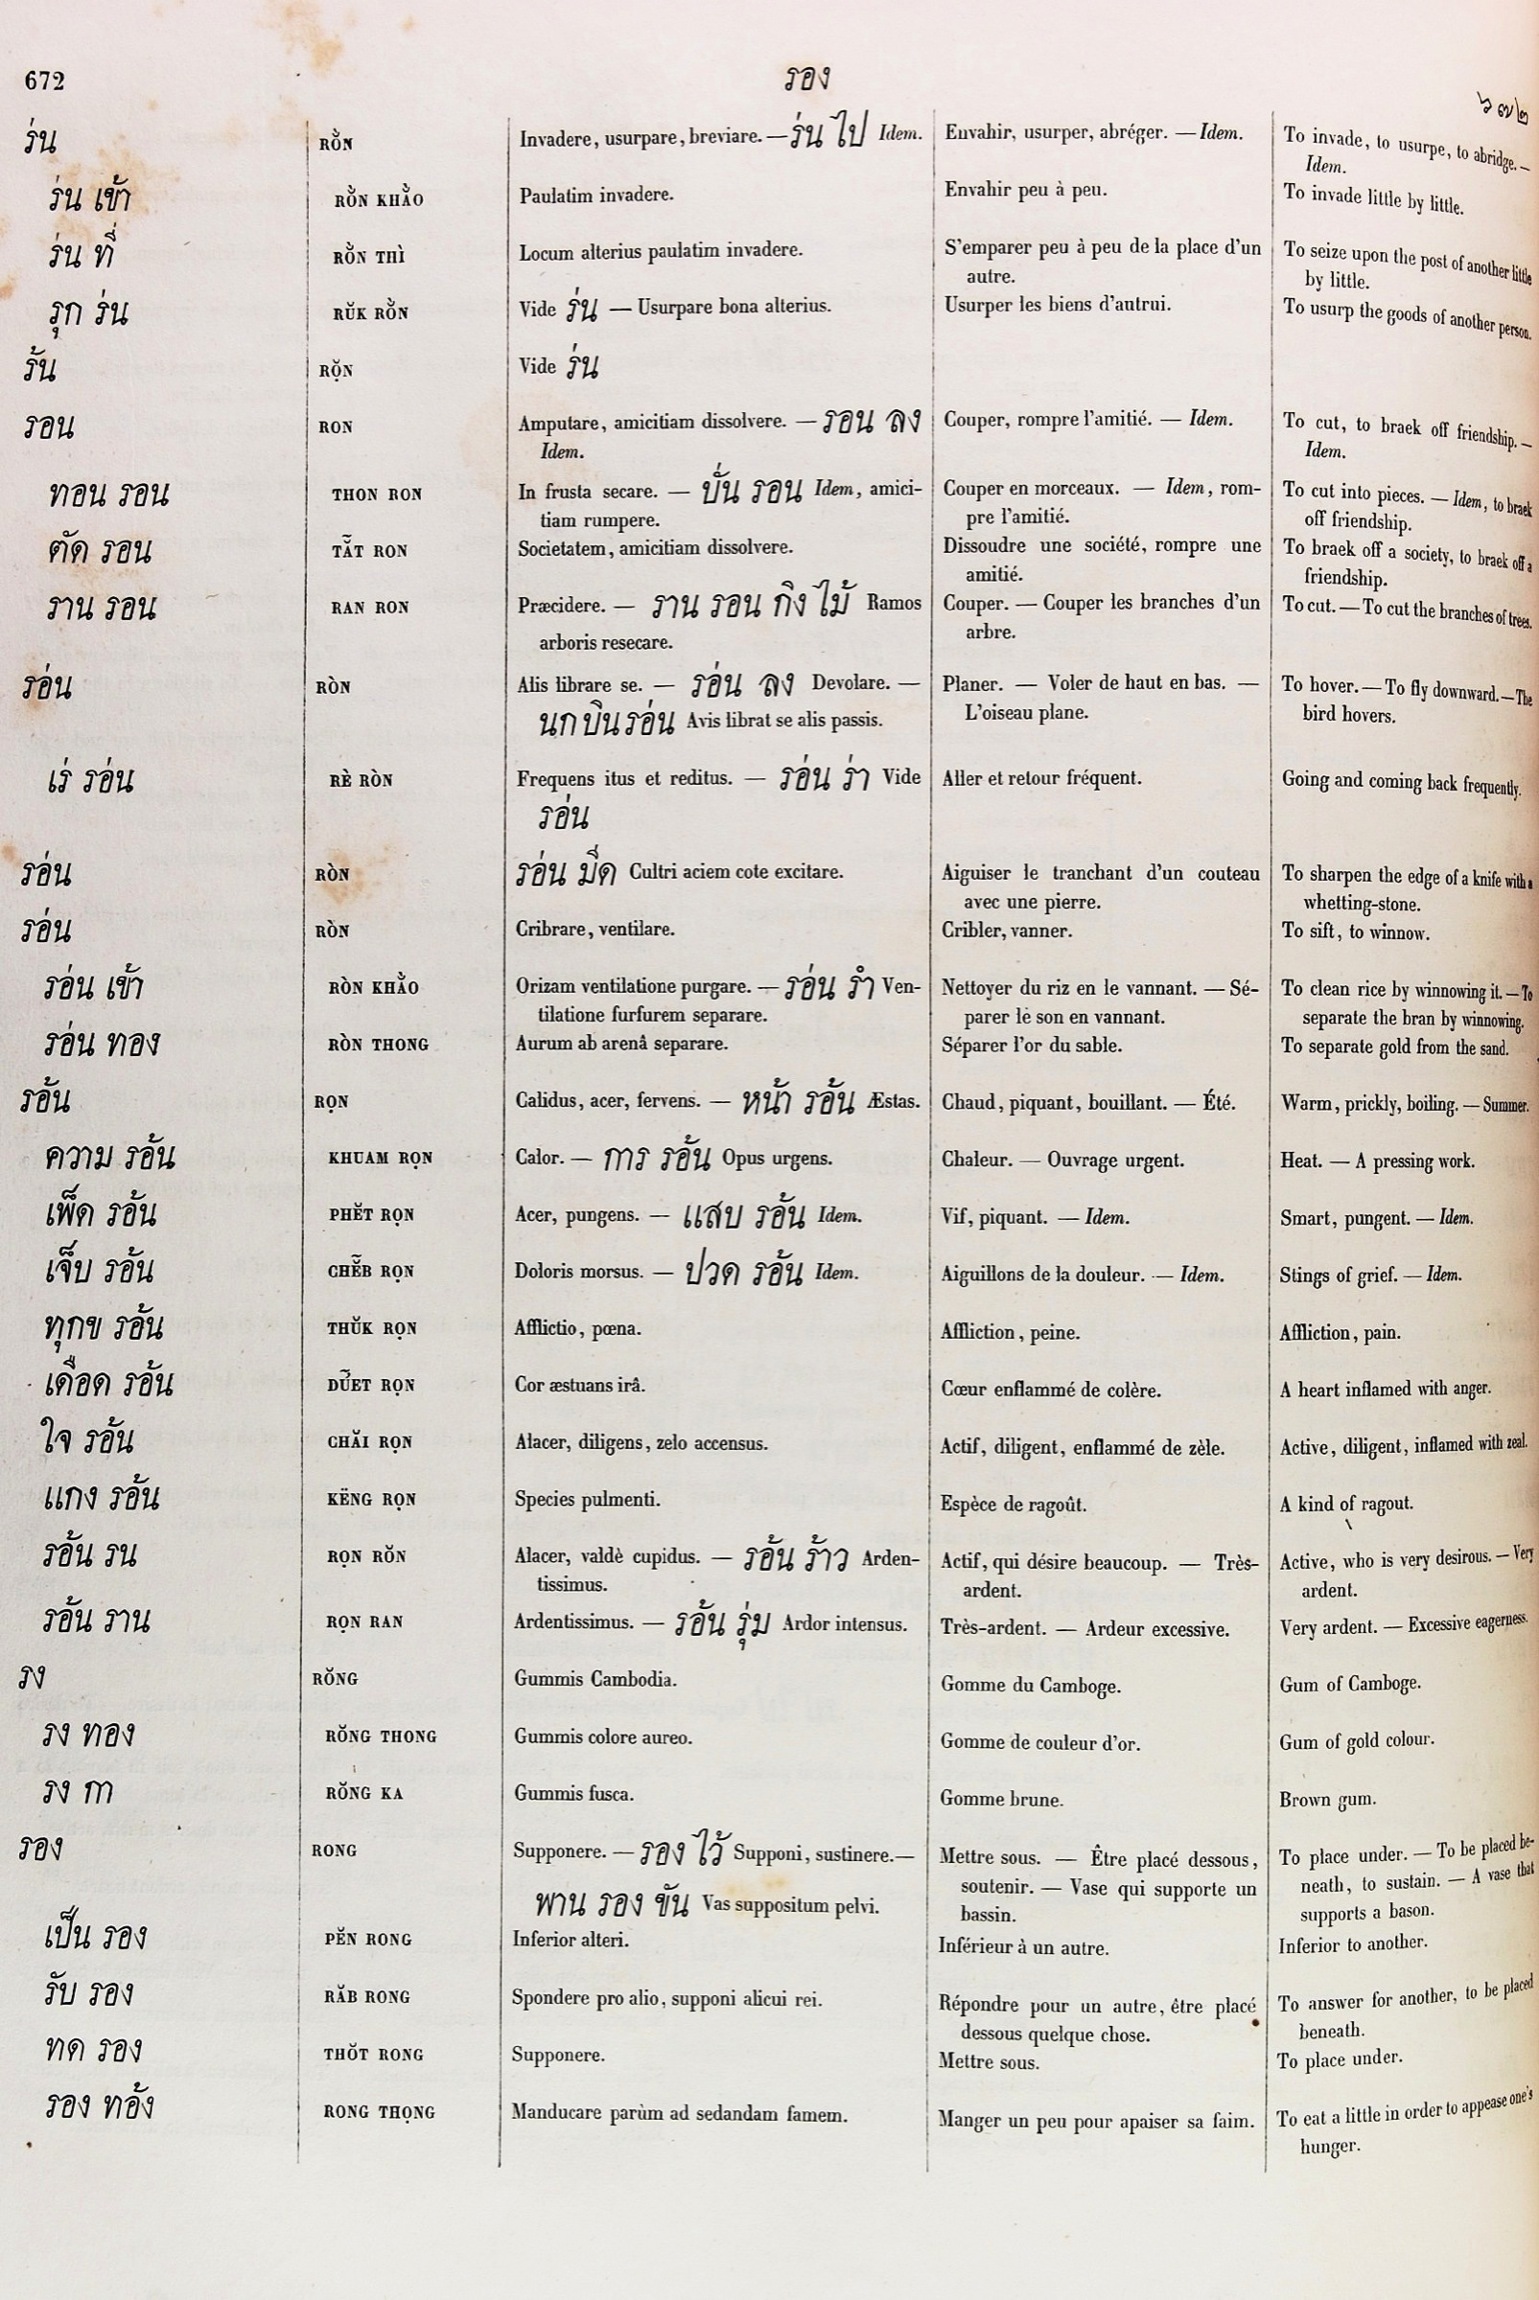 672
รอง
๖๗๒
ร่น RỒN Invadere, usurpare, breviare. — ร่น ไป Idem. Envahir, usurper, abréger. — Idem. To invade, to usurpe, to abridge. —
Idem.
ร่น เข้า RỒN KHẰO Paulatim invadere. Envahir peu à peu. To invade little by little.
ร่น ที่ RỒN THÌ Locum alterius paulatim invadere. S'emparer peu à peu de la place d'un To seize upon the post of another little
autre. by little.
รุก ร่น RŬK RỒN Vide ร่น — Usurpare bona alterius. Usurper les biens d'autrui. To usurp the goods of another person.
ร้น RỌ̆N Vide ร่น
รอน RON Amputare, amicitiam dissolvere. — รอน ลง Couper, rompre l'amitié. — Idem. To cut, to braek off friendship. —
Idem. Idem.
ทอน รอน THON RON In frusta secare. — บั่น รอน Idem, amici- Couper en morceaux. — Idem, rom- To cut into pieces. — Idem, to braek
tiam rumpere. pre l'amitié. off friendship.
ตัด รอน TẴT RON Societatem, amicitiam dissolvere. Dissoudre une société, rompre une To braek off a society, to braek off a
amitié. friendship.
ราน รอน RAN RON Præcidere. — ราน รอน กิง ไม้ Ramos Couper. — Couper les branches d'un To cut. — To cut the branches of trees.
arboris resecare. arbre.
ร่อน RÒN Alis librare se. — ร่อน ลง Devolare. — Planer. — Voler de haut en bas. — To hover. — To fly downward. — The
นก บิน ร่อน Avis librat se alis passis. L'oiseau plane. bird hovers.
เร่ ร่อน RÈ RÒN Frequens itus et reditus. — ร่อน ร่า Vide Aller et retour fréquent. Going and coming back frequently.
ร่อน
ร่อน RÒN ร่อน มีด Cultri aciem cote excitare. Aiguiser le tranchant d'un couteau To sharpen the edge of a knife with a
avec une pierre. whetting-stone.
ร่อน RÒN Cribrare, ventilare. Cribler, vanner. To sift, to winnow.
ร่อน เข้า RÒN KHẰO Orizam ventilatione purgare. — ร่อน รำ Ven- Nettoyer du riz en le vannant. — Sé- To clean rice by winnowing it. — To
tilatione furfurem separare. parer le son en vannant. separate the bran by winnowing.
ร่อน ทอง RÒN THONG Aurum ab arenâ separare. Séparer l'or du sable. To separate gold from the sand.
ร้อน RỌN Calidus, acer, fervens. — หน้า ร้อน Æstas. Chaud, piquant, bouillant. — Été. Warm, prickly, boiling. — Summer.
ความ ร้อน KHUAM RỌN Calor. — การ ร้อน Opus urgens. Chaleur. — Ouvrage urgent. Heat. — A pressing work.
เพ็ด ร้อน PHĔT RỌN Acer, pungens. — แสบ ร้อน Idem. Vif, piquant. — Idem. Smart, pungent. — Idem.
เจ็บ ร้อน CHĔ̃B RỌN Doloris morsus. — ปวด ร้อน Idem. Aiguillons de la douleur. — Idem. Stings of grief. — Idem.
ทุกข ร้อน THŬK RỌN Afflictio, pœna. Affliction, peine. Affliction, pain.
เดือด ร้อน DŨ'ET RỌN Cor æstuans irâ. Cœur enflammé de colère. A heart inflamed with anger.
ใจ ร้อน CHĂI RỌN Alacer, diligens, zelo accensus. Actif, diligent, enflammé de zèle. Active, diligent, inflamed with zeal.
แกง ร้อน KËNG RỌN Species pulmenti. Espèce de ragoût. A kind of ragout.
ร้อน รน RỌN RŎN Alacer, valdè cupidus. — ร้อน ร้าว Arden- Actif, qui désire beaucoup. — Très- Active, who is very desirous. — Very
tissimus. ardent. ardent.
ร้อน ราน RỌN RAN Ardentissimus. — ร้อน รุ่ม Ardor intensus. Très-ardent. — Ardeur excessive. Very ardent. — Excessive eagerness.
รง RŎNG Gummis Cambodia. Gomme du Camboge. Gum of Camboge.
รง ทอง RŎNG THONG Gummis colore aureo. Gomme de couleur d'or. Gum of gold colour.
รง กา RŎNG KA Gummis fusca. Gomme brune. Brown gum.
รอง RONG Supponere. — รอง ไว้ Supponi, sustinere. — Mettre sous. — Être placé dessous, To place under. — To be placed be-
พาน รอง ขัน Vas suppositum pelvi. soutenir. — Vase qui supporte un neath, to sustain. — A vase that
bassin. supports a bason.
เป็น รอง PĔN RONG Inferior alteri. Inférieur à un autre. Inferior to another.
รับ รอง RĂB RONG Spondere pro alio, supponi alicui rei. Répondre pour un autre, être placé To answer for another, to be placed
dessous quelque chose. beneath.
ทด รอง THŎT RONG Supponere. Mettre sous. To place under.
รอง ท้อง RONG THỌNG Manducare parùm ad sedandam famem. Manger un peu pour apaiser sa faim. To eat a little in order to appease one's
hunger.